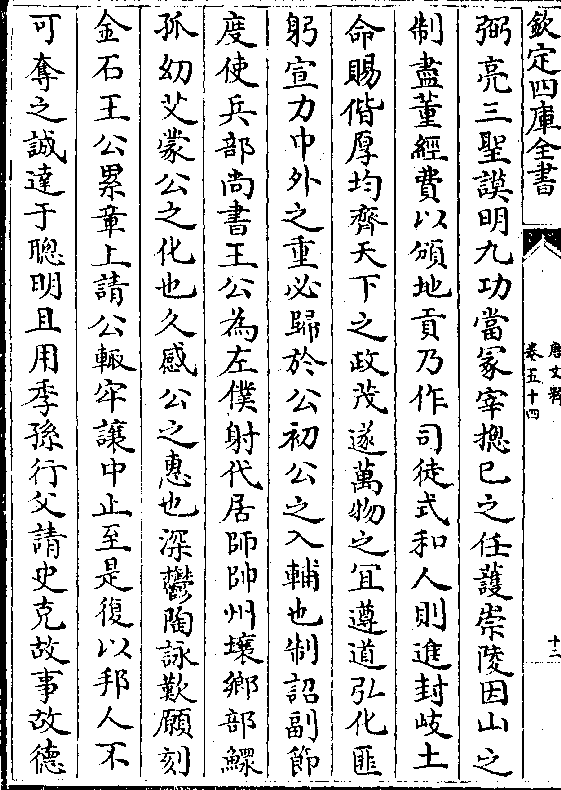 欽定四庫全書
唐文粹
卷五十四
十二
弼亮三聖謨明九功當冢宰摠已之任護崇陵因山之
制盡董經費以頒地貢乃作司徒式和人則進封岐土
命賜偕厚均齊天下之政茂遂萬物之冝遵道弘化匪
躬宣力中外之重必歸於公初公之入輔也制詔副節
度使兵部尚書王公為左僕射代居師帥州壤鄉部鰥
孤幼艾蒙公之化也久感公之惠也深鬱陶詠歎願刻
金石王公累章上請公輒牢讓中止至是復以邦人不
可奪之誠達于聰明且用季孫行父請史克故事故德